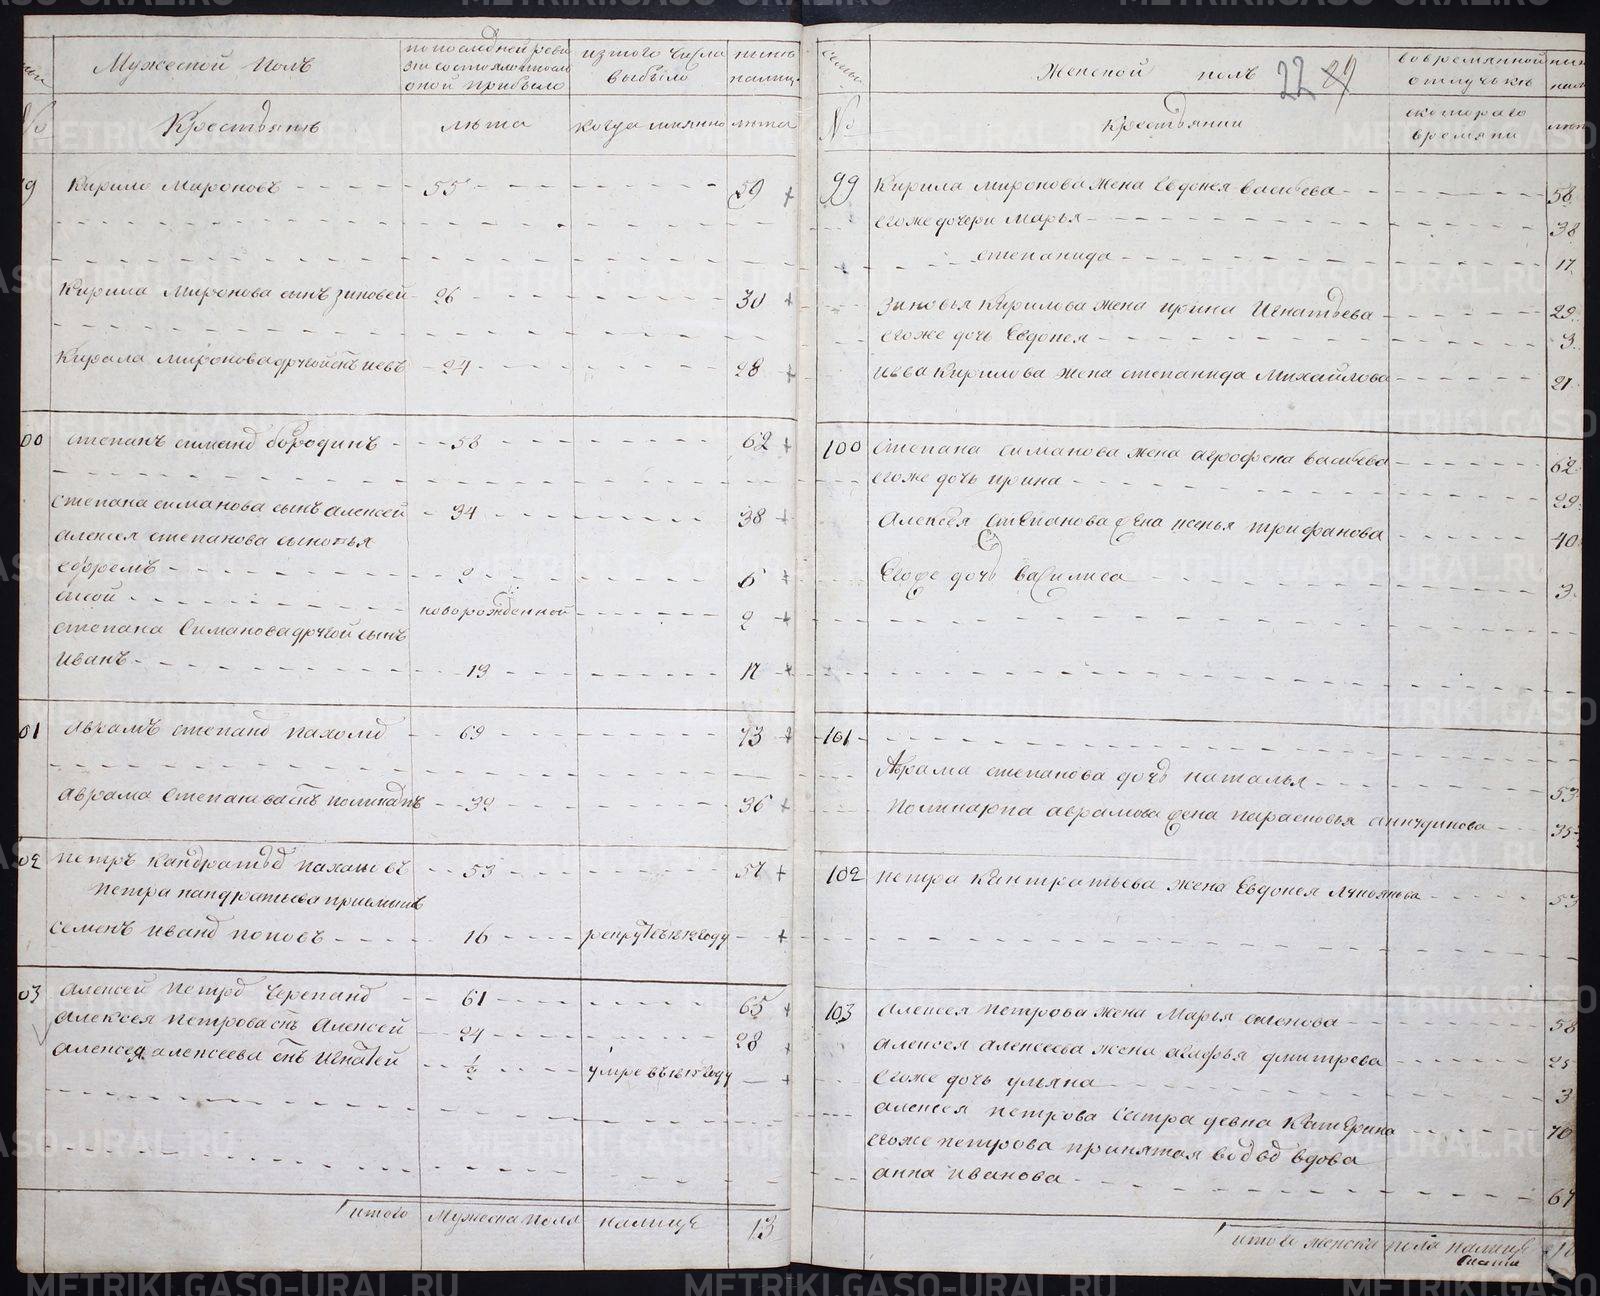 Мужеской полъ
по последней реви
зiи состояло и после
оной прибыло
из того числа
выбыло
ныне
налиц
№
Крестьянъ
лѣта
когда имянно
лѣта
Кирило Мироновъ 55 59
Кирила Миронова сынъ Зиновей 26 30
Кирила Миронова другой снъ иевъ 24 28
00 Степанъ симанd бородинъ 58 62
Степана симанова сынъ алексей 34 38
алексея степанова сыновья
ефремъ 2 6
сысой новорожденной 2
степана Симанова другой сынъ
иванъ 13 17
01 аврамъ степанd пахомd 69 73
аврама Степанова снъ поликарпъ 32 36
02 петръ кандратьd пахомовъ 53 57
петра кандратьева приемышъ
семенъ иванd поповъ 16 рекрутъ въ 1812 году
03 алексей петрd Черепанd 61 65
алексея петрова снъ Алексей 24 28
алексея алексеева снъ Игнатей ½ умре въ 1815 году
итого Мужеска поля налицо 13
Женской полъ
22 89
во временной
отлучьке
№
Крестьянки
с котораго
времяни
99 Кирила миронова жена Евдокея васильева 58
его же дочери Марья 38
степанида 17
Зиновья Кирилова жена ирина Игнатьева 29
его же дочь Евдокея 3
иева Кирилова жена степанида Михайлова 21
100 Степана симанова жена агрофена васильева 62
его же дочь ирина 29
Алексея Степанова жена ксенья трифанова 40
Его же дочь василиса 3
101
Аврама степанова дочь наталья 53
Поликарпа аврамова жена парасковья 35
102 петра Кантратьева жена Евдокея Лукоянова 53
103 Алексея петрова жена Марья семенова 58
алексея алексеева жена агафья дмитрева 25
его же дочь ульяна 3
алексея петрова сестра девка Катерина 70
его же петрова принятая вдова
анна иванова 67
итого женска пола налицо